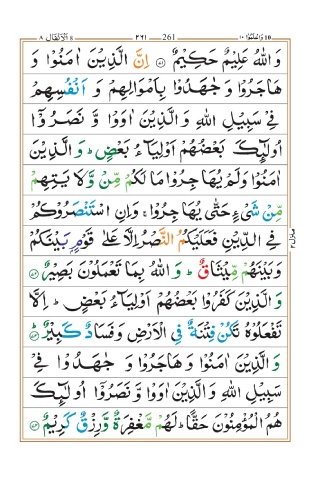 الانفال ٨ ٢٦١ 261 واعلموا ١٠
وَاللّٰهُ عَلِيْمٌ حَكِيْمٌ ۝ اِنَّ الَّذِيْنَ اٰمَنُوْا وَ
هَاجَرُوْا وَ جٰهَدُوْا بِاَمْوَالِهِمْ وَ اَنْفُسِهِمْ
فِيْ سَبِيْلِ اللّٰهِ وَ الَّذِيْنَ اٰوَوْا وَّ نَصَرُوْۤا
اُولٰٓئِكَ بَعْضُهُمْ اَوْلِيَآءُ بَعْضٍ ؕ وَ الَّذِيْنَ
اٰمَنُوْا وَ لَمْ يُهَاجِرُوْا مَا لَكُمْ مِّنْ وَّلَايَتِهِمْ
مِّنْ شَيْءٍ حَتّٰى يُهَاجِرُوْا ۚ وَ اِنِ اسْتَنْصَرُوْكُمْ
فِي الدِّيْنِ فَعَلَيْكُمُ النَّصْرُ اِلَّا عَلٰى قَوْمٍۭ بَيْنَكُمْ
وَ بَيْنَهُمْ مِّيْثَاقٌ ؕ وَ اللّٰهُ بِمَا تَعْمَلُوْنَ بَصِيْرٌ ۝
وَ الَّذِيْنَ كَفَرُوْا بَعْضُهُمْ اَوْلِيَآءُ بَعْضٍ ؕ اِلَّا
تَفْعَلُوْهُ تَكُنْ فِتْنَةٌ فِي الْاَرْضِ وَ فَسَادٌ كَبِيْرٌ ؕ۝
وَ الَّذِيْنَ اٰمَنُوْا وَ هَاجَرُوْا وَ جٰهَدُوْا فِيْ
سَبِيْلِ اللّٰهِ وَ الَّذِيْنَ اٰوَوْا وَّ نَصَرُوْۤا اُولٰٓئِكَ
هُمُ الْمُؤْمِنُوْنَ حَقًّا ؕ لَهُمْ مَّغْفِرَةٌ وَّ رِزْقٌ كَرِيْمٌ ۝
منزل ٢